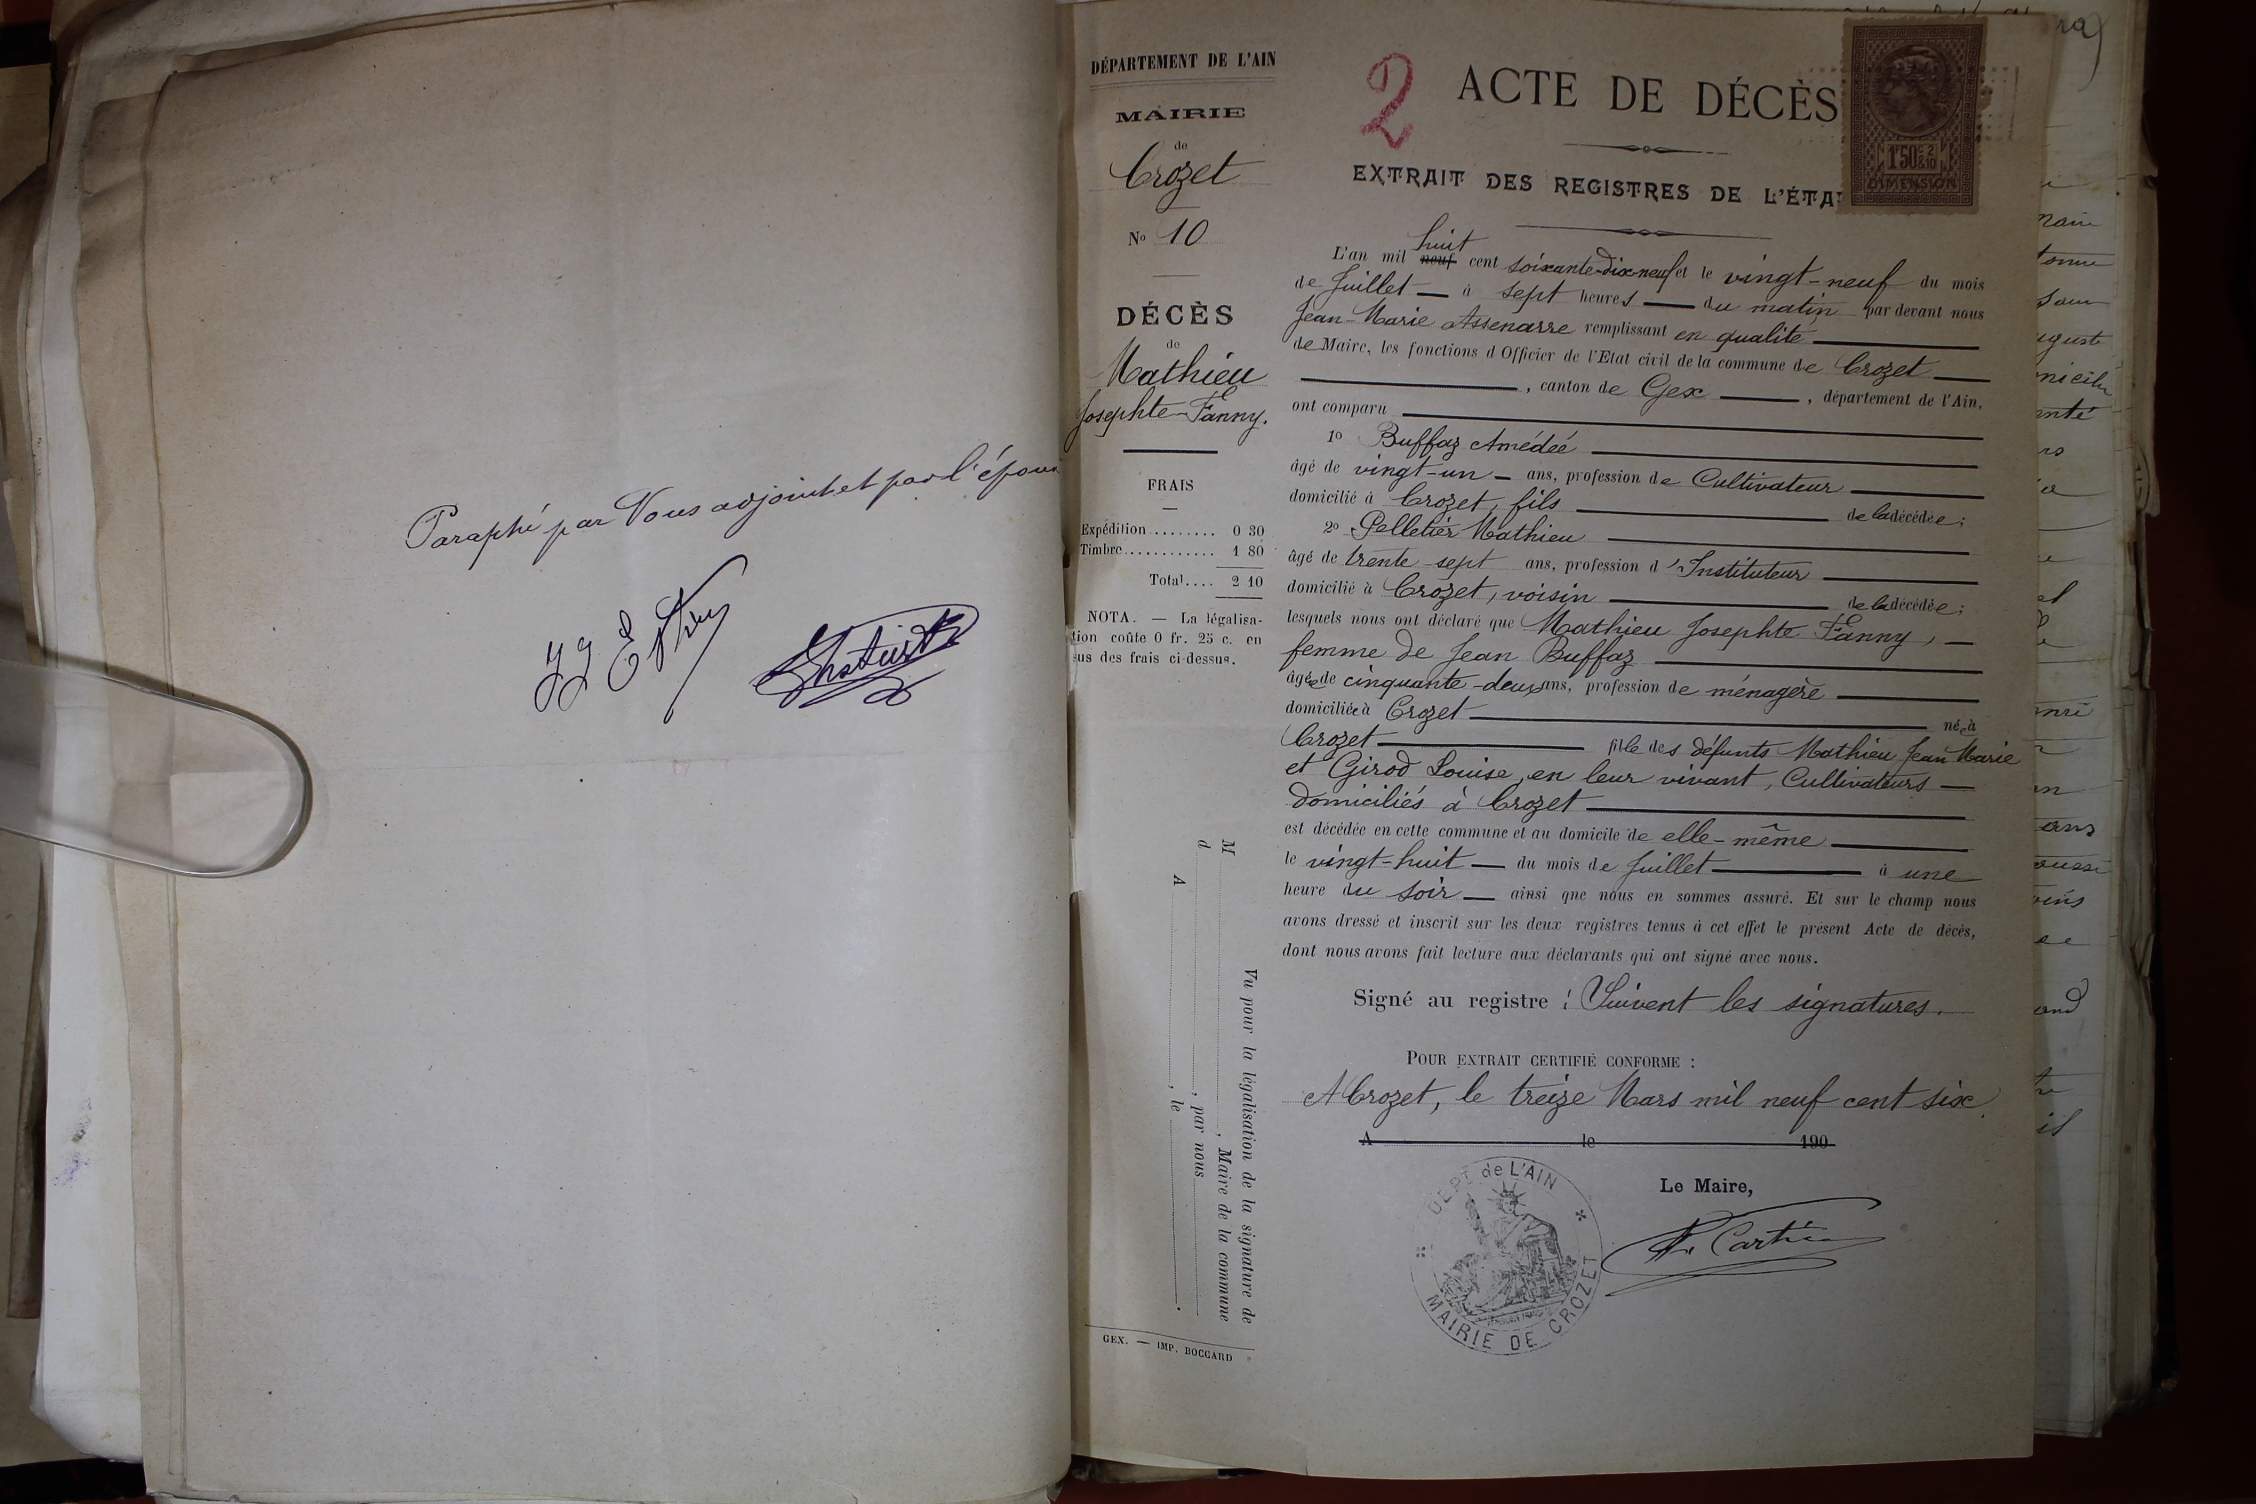 Paraphé par Nous adjoint et par l'époux
DÉPARTEMENT DE L'AIN
MAIRIE
de
Crozet
No 10
DÉCÈS
de
Mathieu
Josephte-Fanny.
FRAIS
Expédition ......... 0 30
Timbre ............ 1 80
Total .... 2 10
NOTA. — La légalisa-
tion coûte 0 fr. 25 c. en
sus des frais ci-dessus.
Vu pour la légalisation de la signature de
M , Maire de la commune
d , par nous
A , le .
GEX. — IMP. BOCCARD
2
ACTE DE DÉCÈS
1F50C 2/10
DIMENSION
EXTRAIT DES REGISTRES DE L'ÉTA
huit
L'an mil neuf cent soixante-dix-neuf et le vingt-neuf du mois
de Juillet — à sept heures — du matin par devant nous
Jean-Marie Assenarre remplissant en qualité
de Maire, les fonctions d'Officier de l'Etat civil de la commune de Crozet
, canton de Gex , département de l'Ain,
ont comparu
1o Buffaz Amédée
âgé de vingt-un ans, profession de Cultivateur
domicilié à Crozet, fils de la décédée;
2o Pelletier Mathieu
âgé de trente-sept ans, profession d'Instituteur
domicilié à Crozet, voisin de la décédée;
lesquels nous ont déclaré que Mathieu Josephte Fanny, —
femme de Jean Buffaz
âgée de cinquante-deux ans, profession de ménagère
domiciliée à Crozet née à
Crozet fille des défunts Mathieu Jean Marie
et Girod Louise, en leur vivant, Cultivateurs —
domiciliés à Crozet
est décédée en cette commune et au domicile de elle-même
le vingt-huit — du mois de Juillet à une
heure du soir — ainsi que nous en sommes assuré. Et sur le champ nous
avons dressé et inscrit sur les deux registres tenus à cet effet le présent Acte de décès,
dont nous avons fait lecture aux déclarants qui ont signé avec nous.
Signé au registre : Suivent les signatures.
POUR EXTRAIT CERTIFIÉ CONFORME :
A Crozet, le treize Mars mil neuf cent six
A le 190
Le Maire,
DEPT de L'AIN
MAIRIE DE CROZET